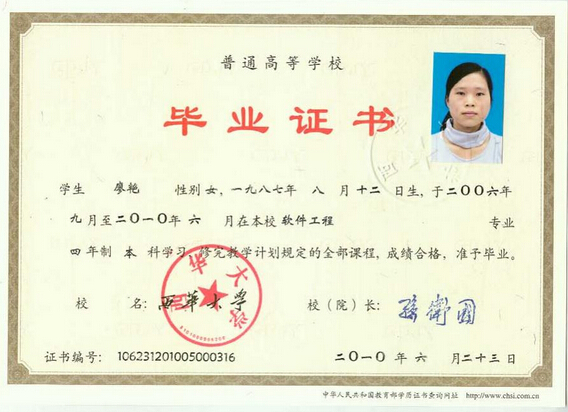 普通高等学校
毕业证书
学生 廖艳 性别女,一九八七年 八 月十二日生,于二〇〇六年
九月至二〇一〇年 六 月在本校 软件工程 专业
四年制 本 科学习,修完教学计划规定的全部课程,成绩合格,准予毕业。
校 名:西华大学 校(院)长:
证书编号: 106231201005000316 二〇一〇年 六 月二十三日
中华人民共和国教育部学历证书查询网址 http://www.chsi.com.cn